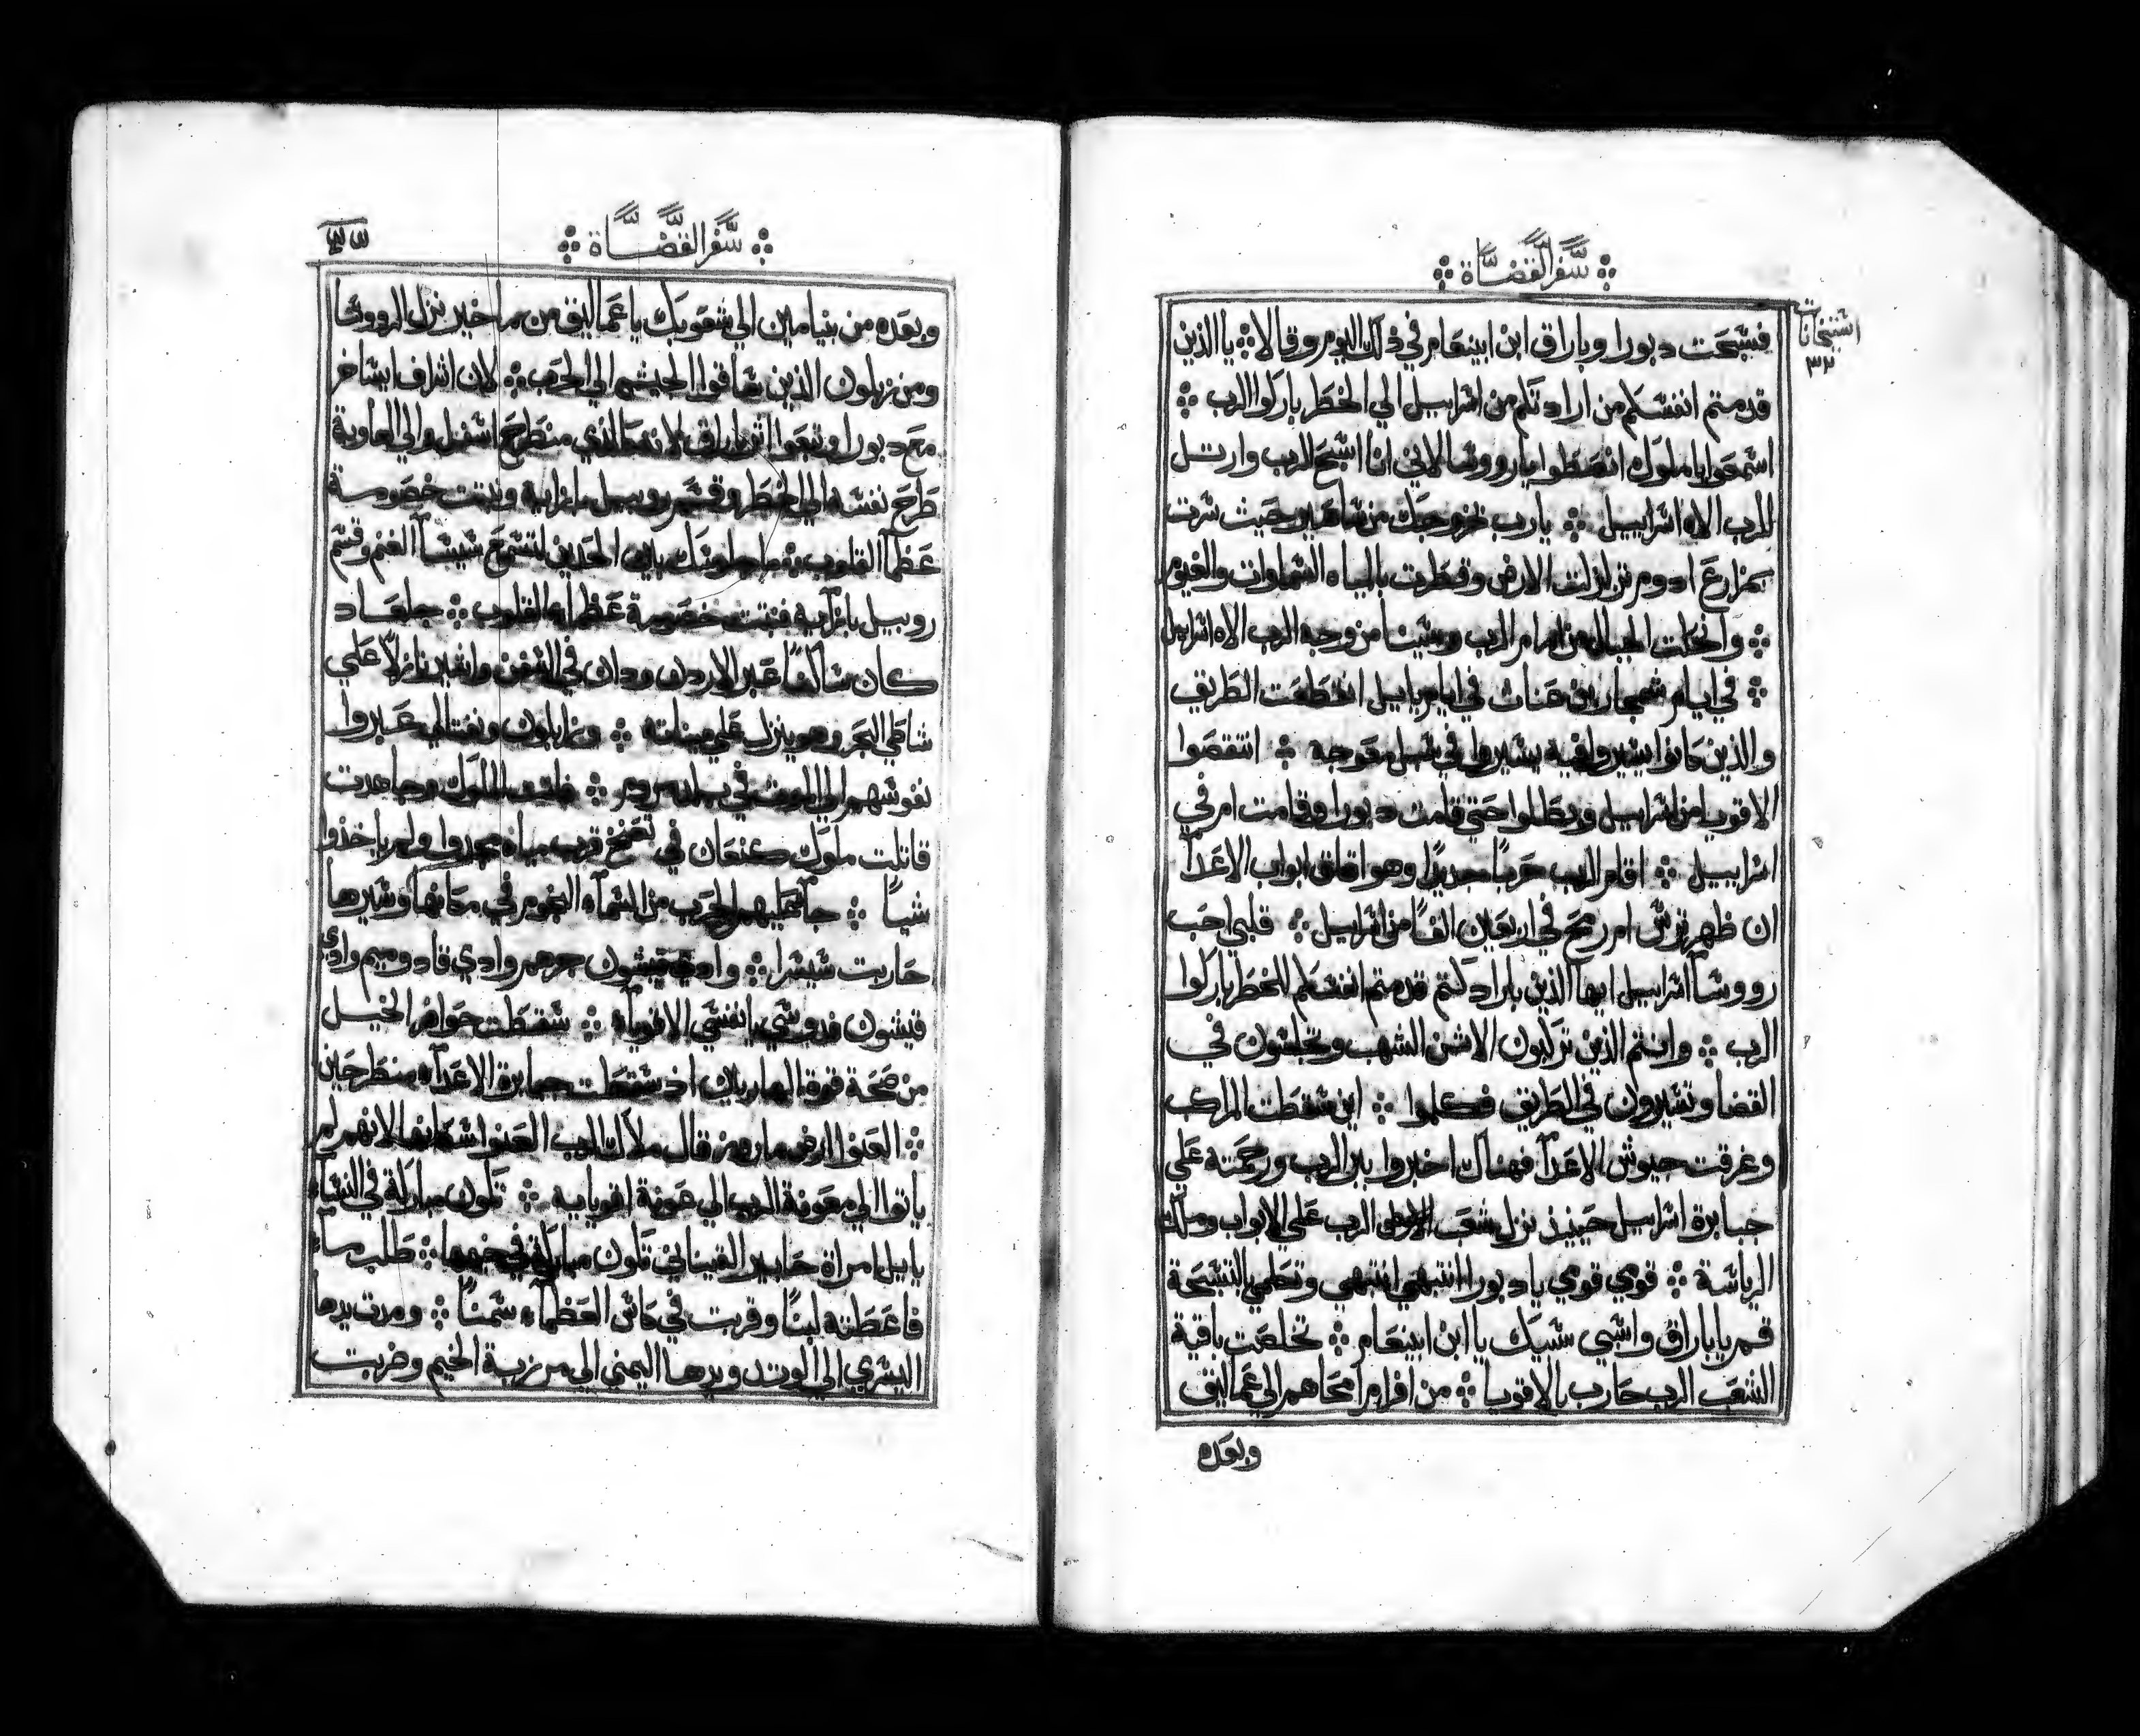 سفر القضاة
استبحانات
٣٢
فسبحت دبورا وباراق ابن ابينعام في ذلك اليوم وقالا ⁘ يا الذين
قدمتم انفسكم من ارادتكم من اسراييل الي الخطر باركوا الرب ⁘
اسمعوا يا ملوك انصطوا يا رووسا لاني انا اسبح للرب وارتل
للرب الاه اسراييل ⁘ يارب بخروجك من ساعير حيث سرت
بمزارع ادوم تزلزلت الارض وقطرت بالمياه السماوات والغيوم
⁘ وانحلت الجبال من امام الرب وسينا من وجه الرب الاه اسراييل
⁘ في ايام شمجار بن عناث في ايام ياييل انقطعت الطريق
والذين كانوا يسيروا فيه يسيروا في سبل معوجه ⁘ انتقصوا
الاقويا من اسراييل وبطلوا حتي قامت دبورا وقامت ام في
اسراييل ⁘ اقام الرب حربا جديدا وهو اقلق ابواب الاعدآ
ان ظهر ترس ام رمح في اربعين الفا من اسراييل ⁘ قلبي احب
رووسآ اسراييل ايها الذين بارادتكم قدمتم انفسكم للخطر باركوا
الرب ⁘ وانتم الذين تركبون الاتن الشهب وتجلسون في
القضا وتسيرون في الطريق فكلموا ⁘ اين سقطت المراكب
وغرقت جيوش الاعدآ فهناك اخبروا ببر الرب ورحمته علي
جبابرة اسراييل حينيذ نزل شعب الرب علي الابواب وملك
الرياسة ⁘ قومي قومي يا دبورا انتبهي انتبهي وتكلمي بالتسبحة
قم يا باراق واسبي سبيك يا ابن ابينعام ⁘ تخلصت باقية
الشعب الرب حارب بالاقويا ⁘ من افرام امحاهم الي عماليق
وبعده
سفر القضاة
وبعده من بنيامين الي شعوبك يا عماليق من ماخير نزل الرووسا
ومن زبلون الذين ساقوا الجيش الي الحرب ⁘ لان اشراف ايساخر
مع دبورا وتبعوا اثر باراق لانه كالذي منطرح اسفل والي الهاوية
طرح نفسه الي الخطر وقسم روبيل بازايه وثبتت خصومة
عظمآ القلوب ⁘ ما جلوسك بين الحدين لتسمع شيشآ الغنم وقسم
روبيل بازآيه فثبتت خصومة عظمآء القلوب ⁘ جلعاد
كان ساكنا عبر الاردن ودان في السفن واشير نازلا علي
شاطي البحر وهو ينزل علي ميناته ⁘ وزابلون ونفتالي عبروا
نفوسهم الي الموت في بلد مروم ⁘ الملوك وجاهدت
قاتلت ملوك كنعان في تعنخ قرب مياه مجدوا ولم ياخذوا
شيا ⁘ جآ عليهم الحرب من السمآء النجوم في مكانها وسيرها
حاربت سيسرا ⁘ وادي قيشون جرهم وادي قادوميم وادي
قيشون فدوسي يا نفسي الاقويآء ⁘ سقطت حوافر الخيل
من صحة قوة الهاربين اذ سقطت جبابرة الاعدآء منطرحين
⁘ العنوا ارض ماروز قال ملاك الرب العنوا سكانها لانهم لم
ياتوا الي معونة الرب الي عونة اقويايه ⁘ تكون مباركة في النسآء
ياييل امراة حابير القيناني تكون مباركة في خيمها ⁘ طلب مآء
فاعطته لبنا وقربت في كاس العظمآء سمنا ⁘ ومدت يدها
اليسري الي الوتد ويدها اليمني الي مرزبة الخيم وضربت